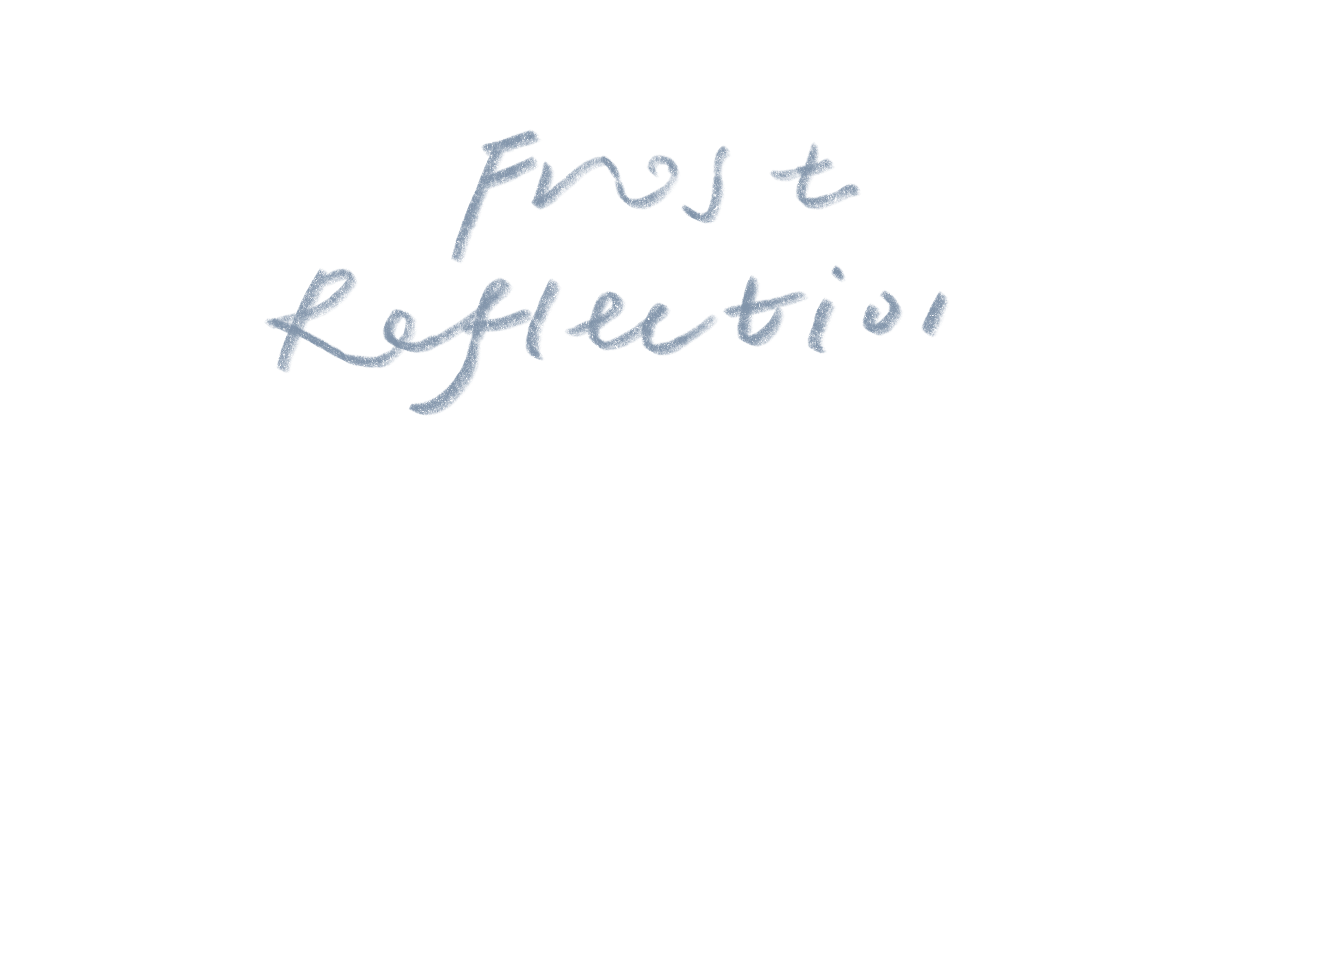 Frost
Reflection